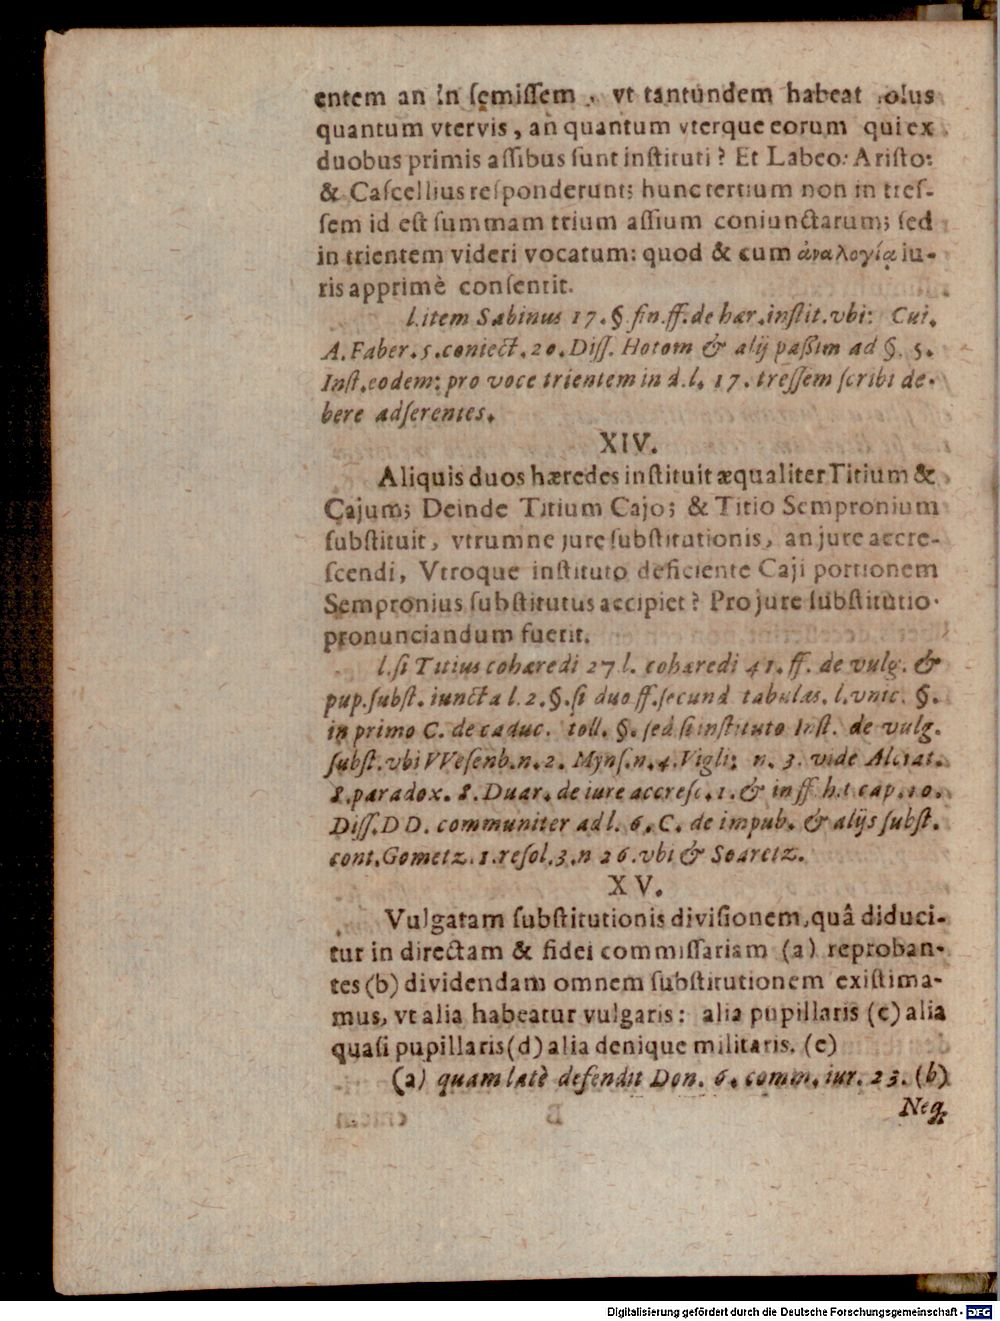 entem an in ſemiſſem, vt tantundem habeat ſolus
quantum vtervis, an quantum vterque eorum qui ex
duobus primis aſſibus ſunt inſtituti? Et Labeo: Ariſto:
& Caſcellius reſponderunt; hunc tertium non in treſ-
ſem id eſt ſummam trium aſſium coniunctarum; ſed
in trientem videri vocatum: quod & cum ἀναλογίᾳ iu-
ris apprimè conſentit.
l. item Sabinus 17. §. fin. ff. de hær. inſtit. vbi: Cui.
A. Faber. 5. coniect. 20. Diſſ. Hotom & alij paßim ad §. 5.
Inſt. eodem: pro voce trientem in d. l. 17. treſſem ſcribi de-
bere adſerentes.
XIV.
Aliquis duos hæredes inſtituit æqualiter Titium &
Cajum; Deinde Titium Cajo; & Titio Sempronium
ſubſtituit, vtrumne jure ſubſtitutionis, an jure accre-
ſcendi, Vtroque inſtituto deficiente Caji portionem
Sempronius ſubſtitutus accipiet? Pro jure ſubſtitutio-
pronunciandum fuerit.
l. ſi Titius cohæredi 27 l. cohæredi 41. ff. de vulg. &
pup. ſubſt. iuncta l. 2. §. ſi duo ff. ſecund tabulas. l. vnic. §.
in primo C. de caduc. toll. §. ſed ſi inſtituto Inſt. de vulg.
ſubſt. vbi VVeſenb. n. 2. Mynſ. n. 4. Vigli; n. 3. vide Alciat.
8. paradox. 8. Duar. de iure accreſc. 1. & in ff h. t cap. 10.
Diſſ. D D. communiter ad l. 6. C. de impub. & alijs ſubſt.
cont. Gometz. 1. reſol. 3. n 26. vbi & Soaretz.
XV.
Vulgatam ſubſtitutionis diviſionem, quâ diduci-
tur in directam & fidei commiſſariam (a) reproban-
tes (b) dividendam omnem ſubſtitutionem exiſtima-
mus, vt alia habeatur vulgaris: alia pupillaris (c) alia
quaſi pupillaris (d) alia denique militaris. (e)
(a) quam latè defendit Don. 6. comm. iur. 23. (b)
Neq
Digitalisierung gefördert durch die Deutsche Forschungsgemeinschaft - DFG